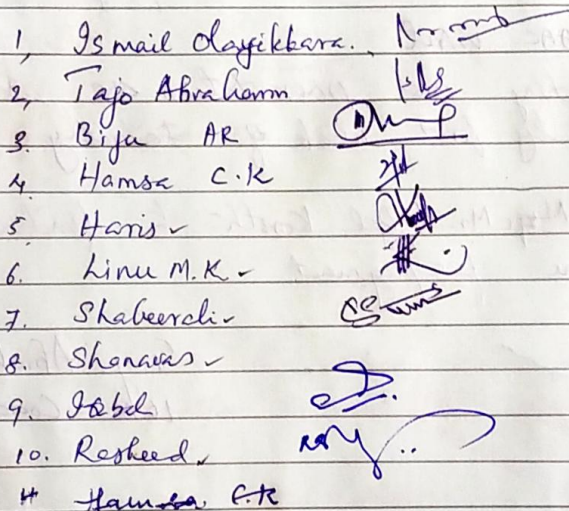 1, Ismail Olayikkara.
2, Tajo Abraham
3. Biju AR
4. Hamsa C.K
5. Haris ✓
6. Linu M.K ✓
7. Shabeerali ✓
8. Shanavas ✓
9. Iqbal
10. Rasheed ✓
11 Hamsa C.K